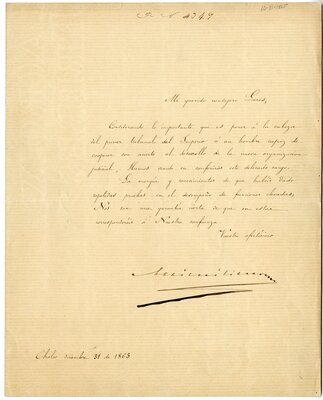 Nº 4347
Mi querido consejero Lares,
Considerando lo importante que es poner á la cabeza
del primer tribunal del Imperio á un hombre capaz de
cooperar con acierto al desarrollo de la nueva organizacion
judicial, Hemos venido en confiaros este delicado cargo.
La energía y conocimientos de que habeis dado
repetidas pruebas en el desempeño de funciones elevadas,
Nos son una garantía cierta de que en esta
corresponderéis á Nuestra confianza.
Vuestro afectísimo
Maximiliano
31 de 1865